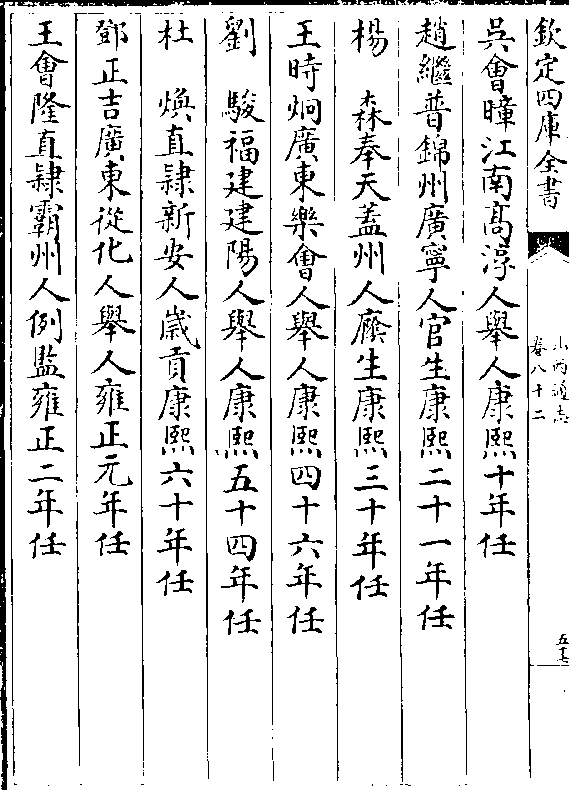 欽定四庫全書
山西通志
卷八十二
吳會暲江南高淳人舉人康熙十年任
趙繼普錦州廣寧人官生康熙二十一年任
楊　森奉天蓋州人廕生康熙三十年任
王時炯廣東樂會人舉人康熙四十六年任
劉　駿福建建陽人舉人康熙五十四年任
杜　煥直隸新安人歲貢康熙六十年任
鄧正吉廣東從化人舉人雍正元年任
王會隆直隸霸州人例監雍正二年任